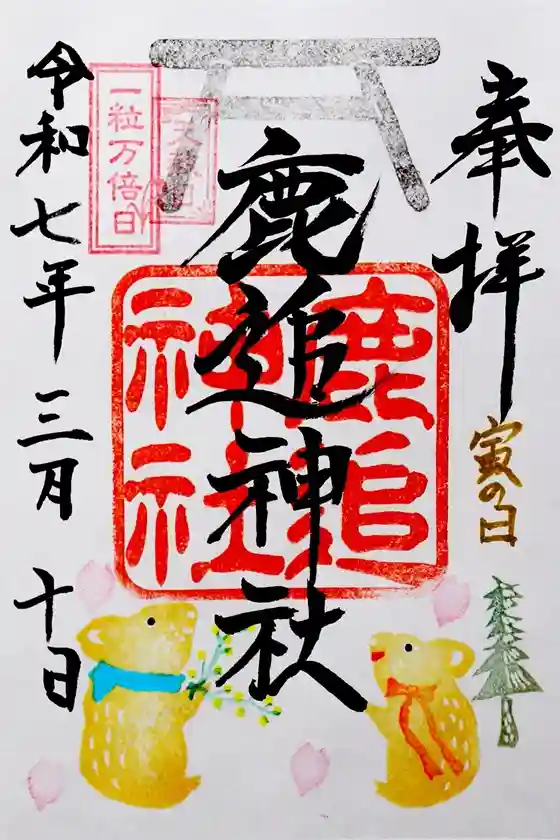 奉拝
寅の日
鹿追神社
鹿追
神社
一粒万倍日
天赦日
令和七年三月十日